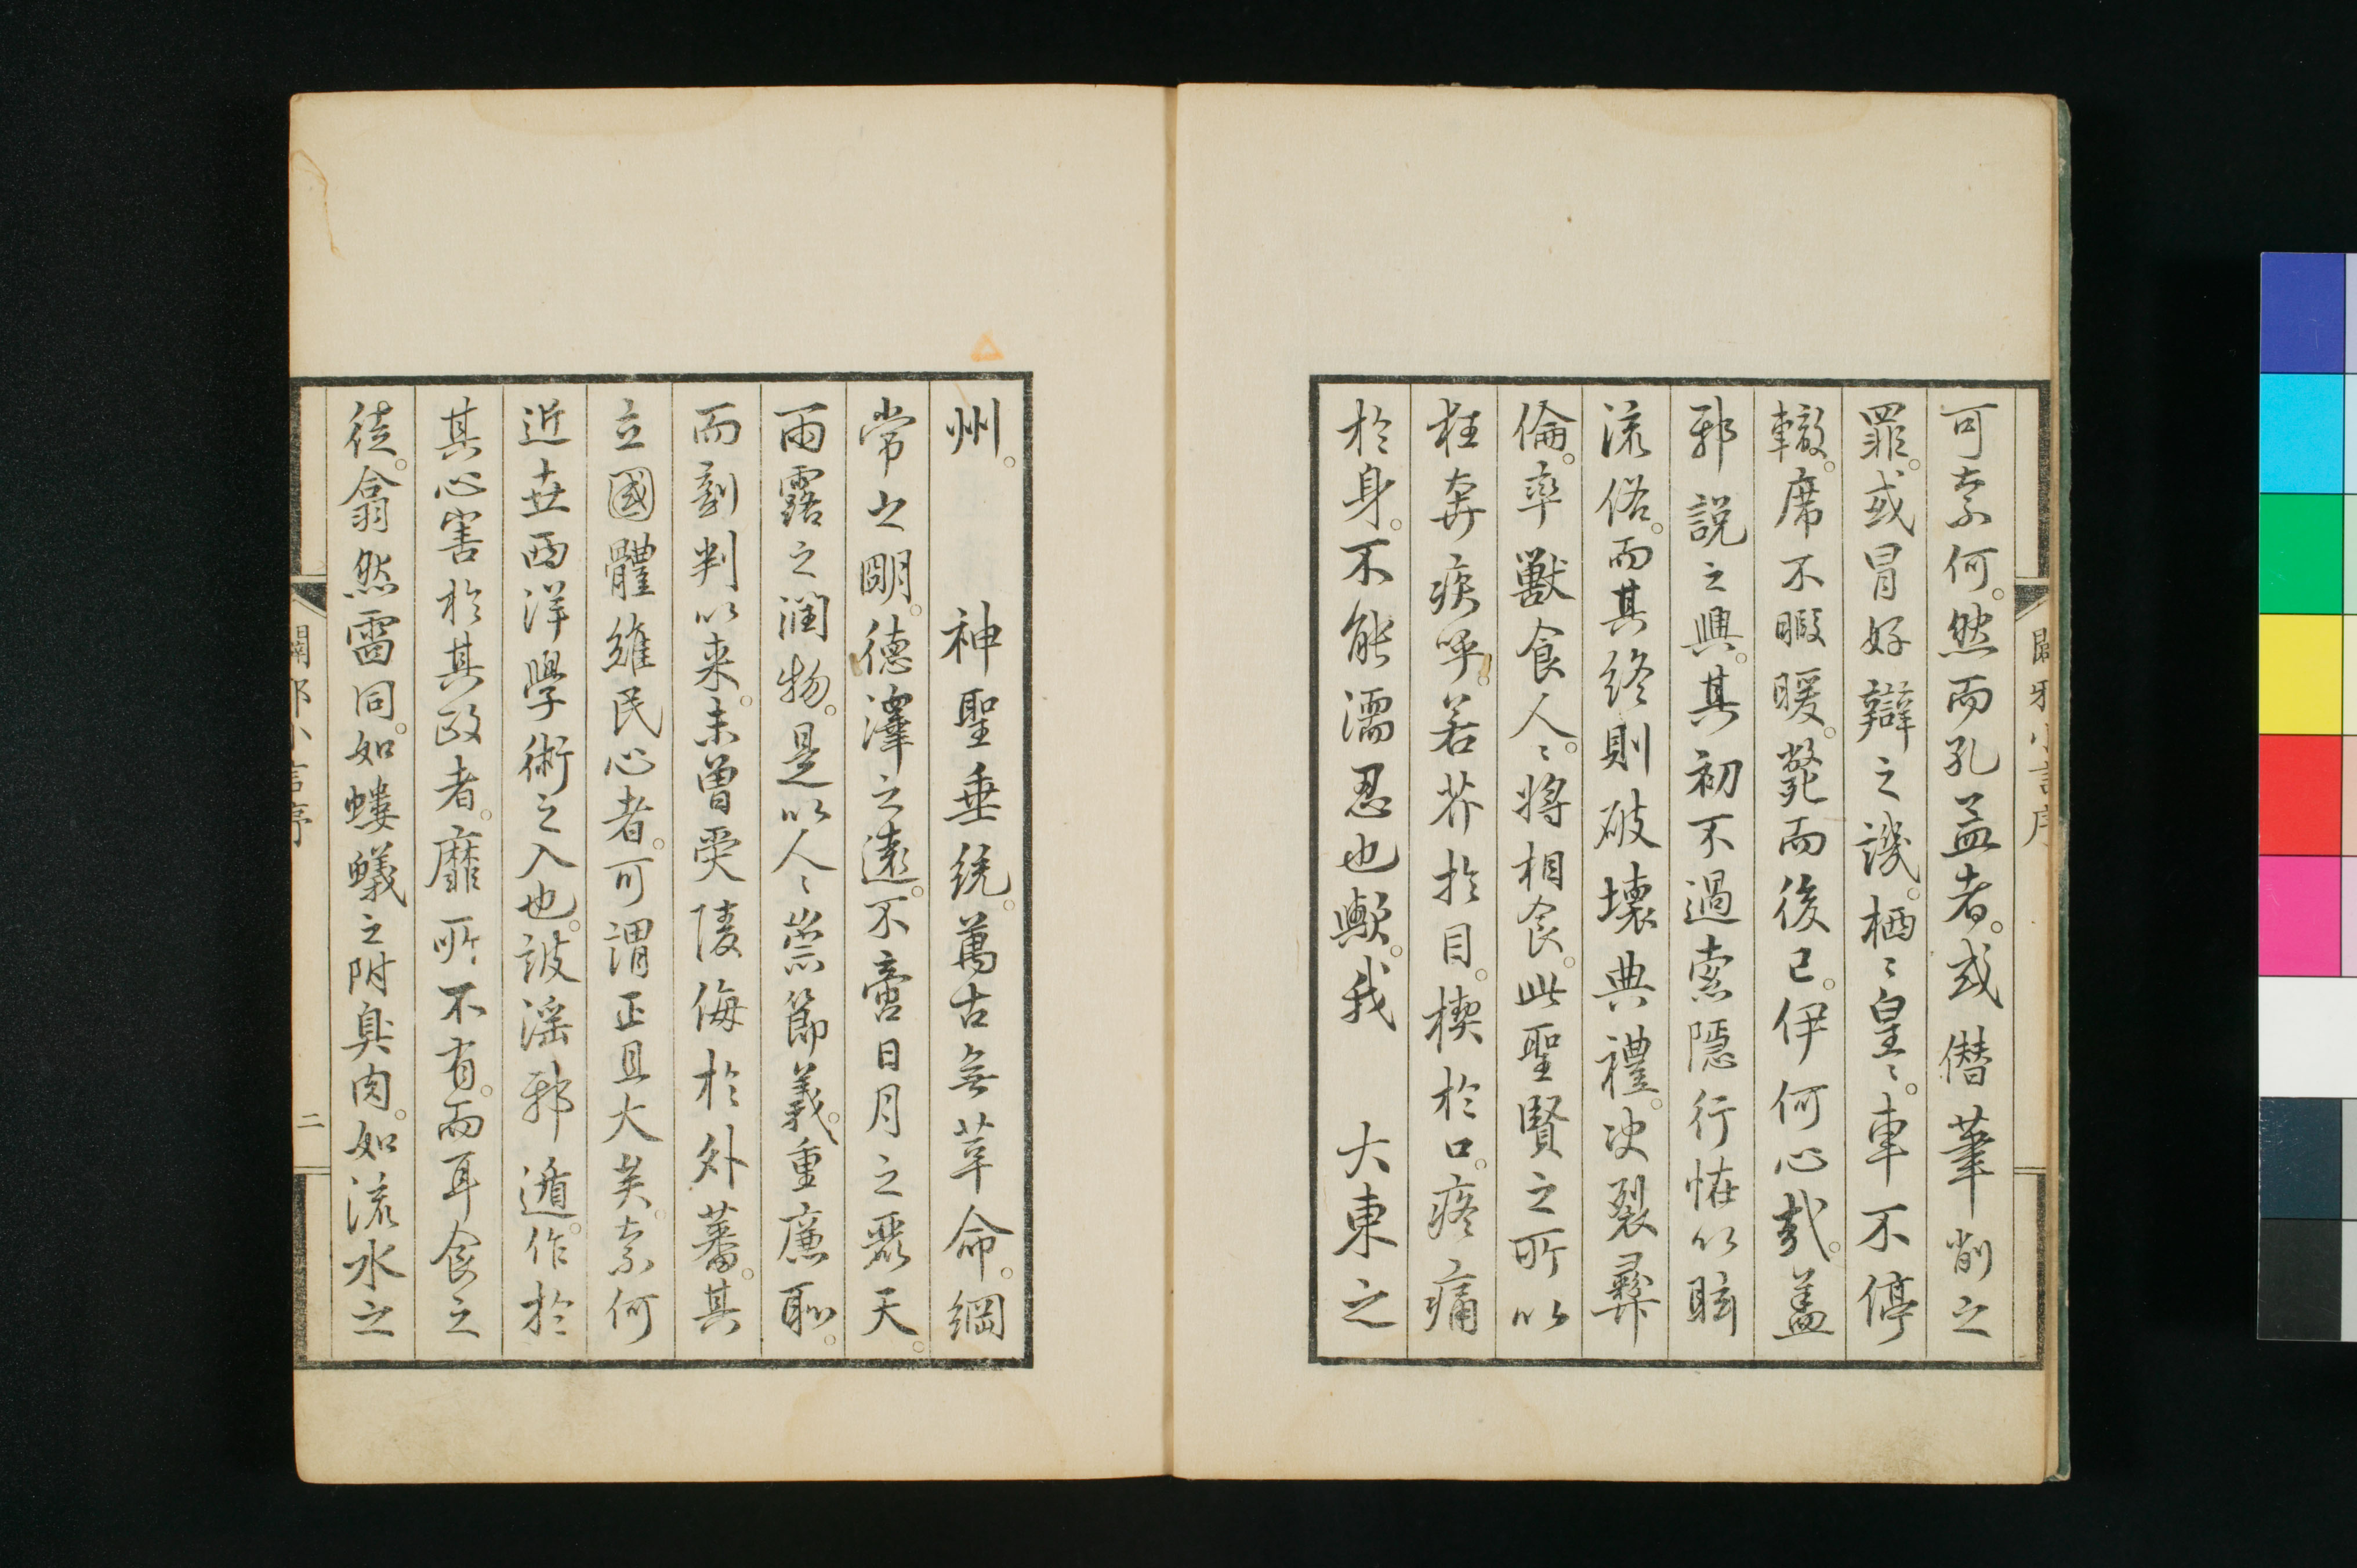 可奈何。然而孔孟者。或僭筆削之
罪。或冒好辯之譏。栖〻皇〻。車不停
轍。席不暇暖。斃而後已。伊何心哉。蓋
邪說之興。其初不過索隱行怪以眩
流俗。而其終則破壞典禮。決裂彝
倫。率獸食人〻。將相食。此聖賢之所以
狂奔疾呼。若芥於目。楔於口。疼痛
於身。不能濡忍也歟。我　大東之
闢邪小言序
州。　神聖垂統。萬古無革命。綱
常之明。德澤之遠。不啻日月之麗天。
雨露之潤物。是以人〻崇節義。重廉恥。
而剖判以來。未曾受陵侮於外蕃。其
立國體維民心者。可謂正且大矣。奈何
近世西洋學術之入也。詖淫邪遁。作於
其心害於其政者。靡所不有。而耳食之
徒。翕然雷同。如螻蟻之附臭肉。如流水之
闢邪小言序
二